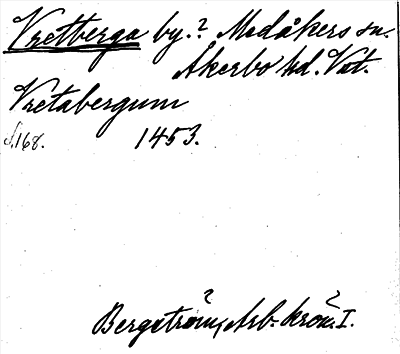 Vretberga by.? Medåkers sn.
Åkerbo hd. Vstm.
Vretabergum
s. 168. 1453.
Bergström, Arb. krön. I.